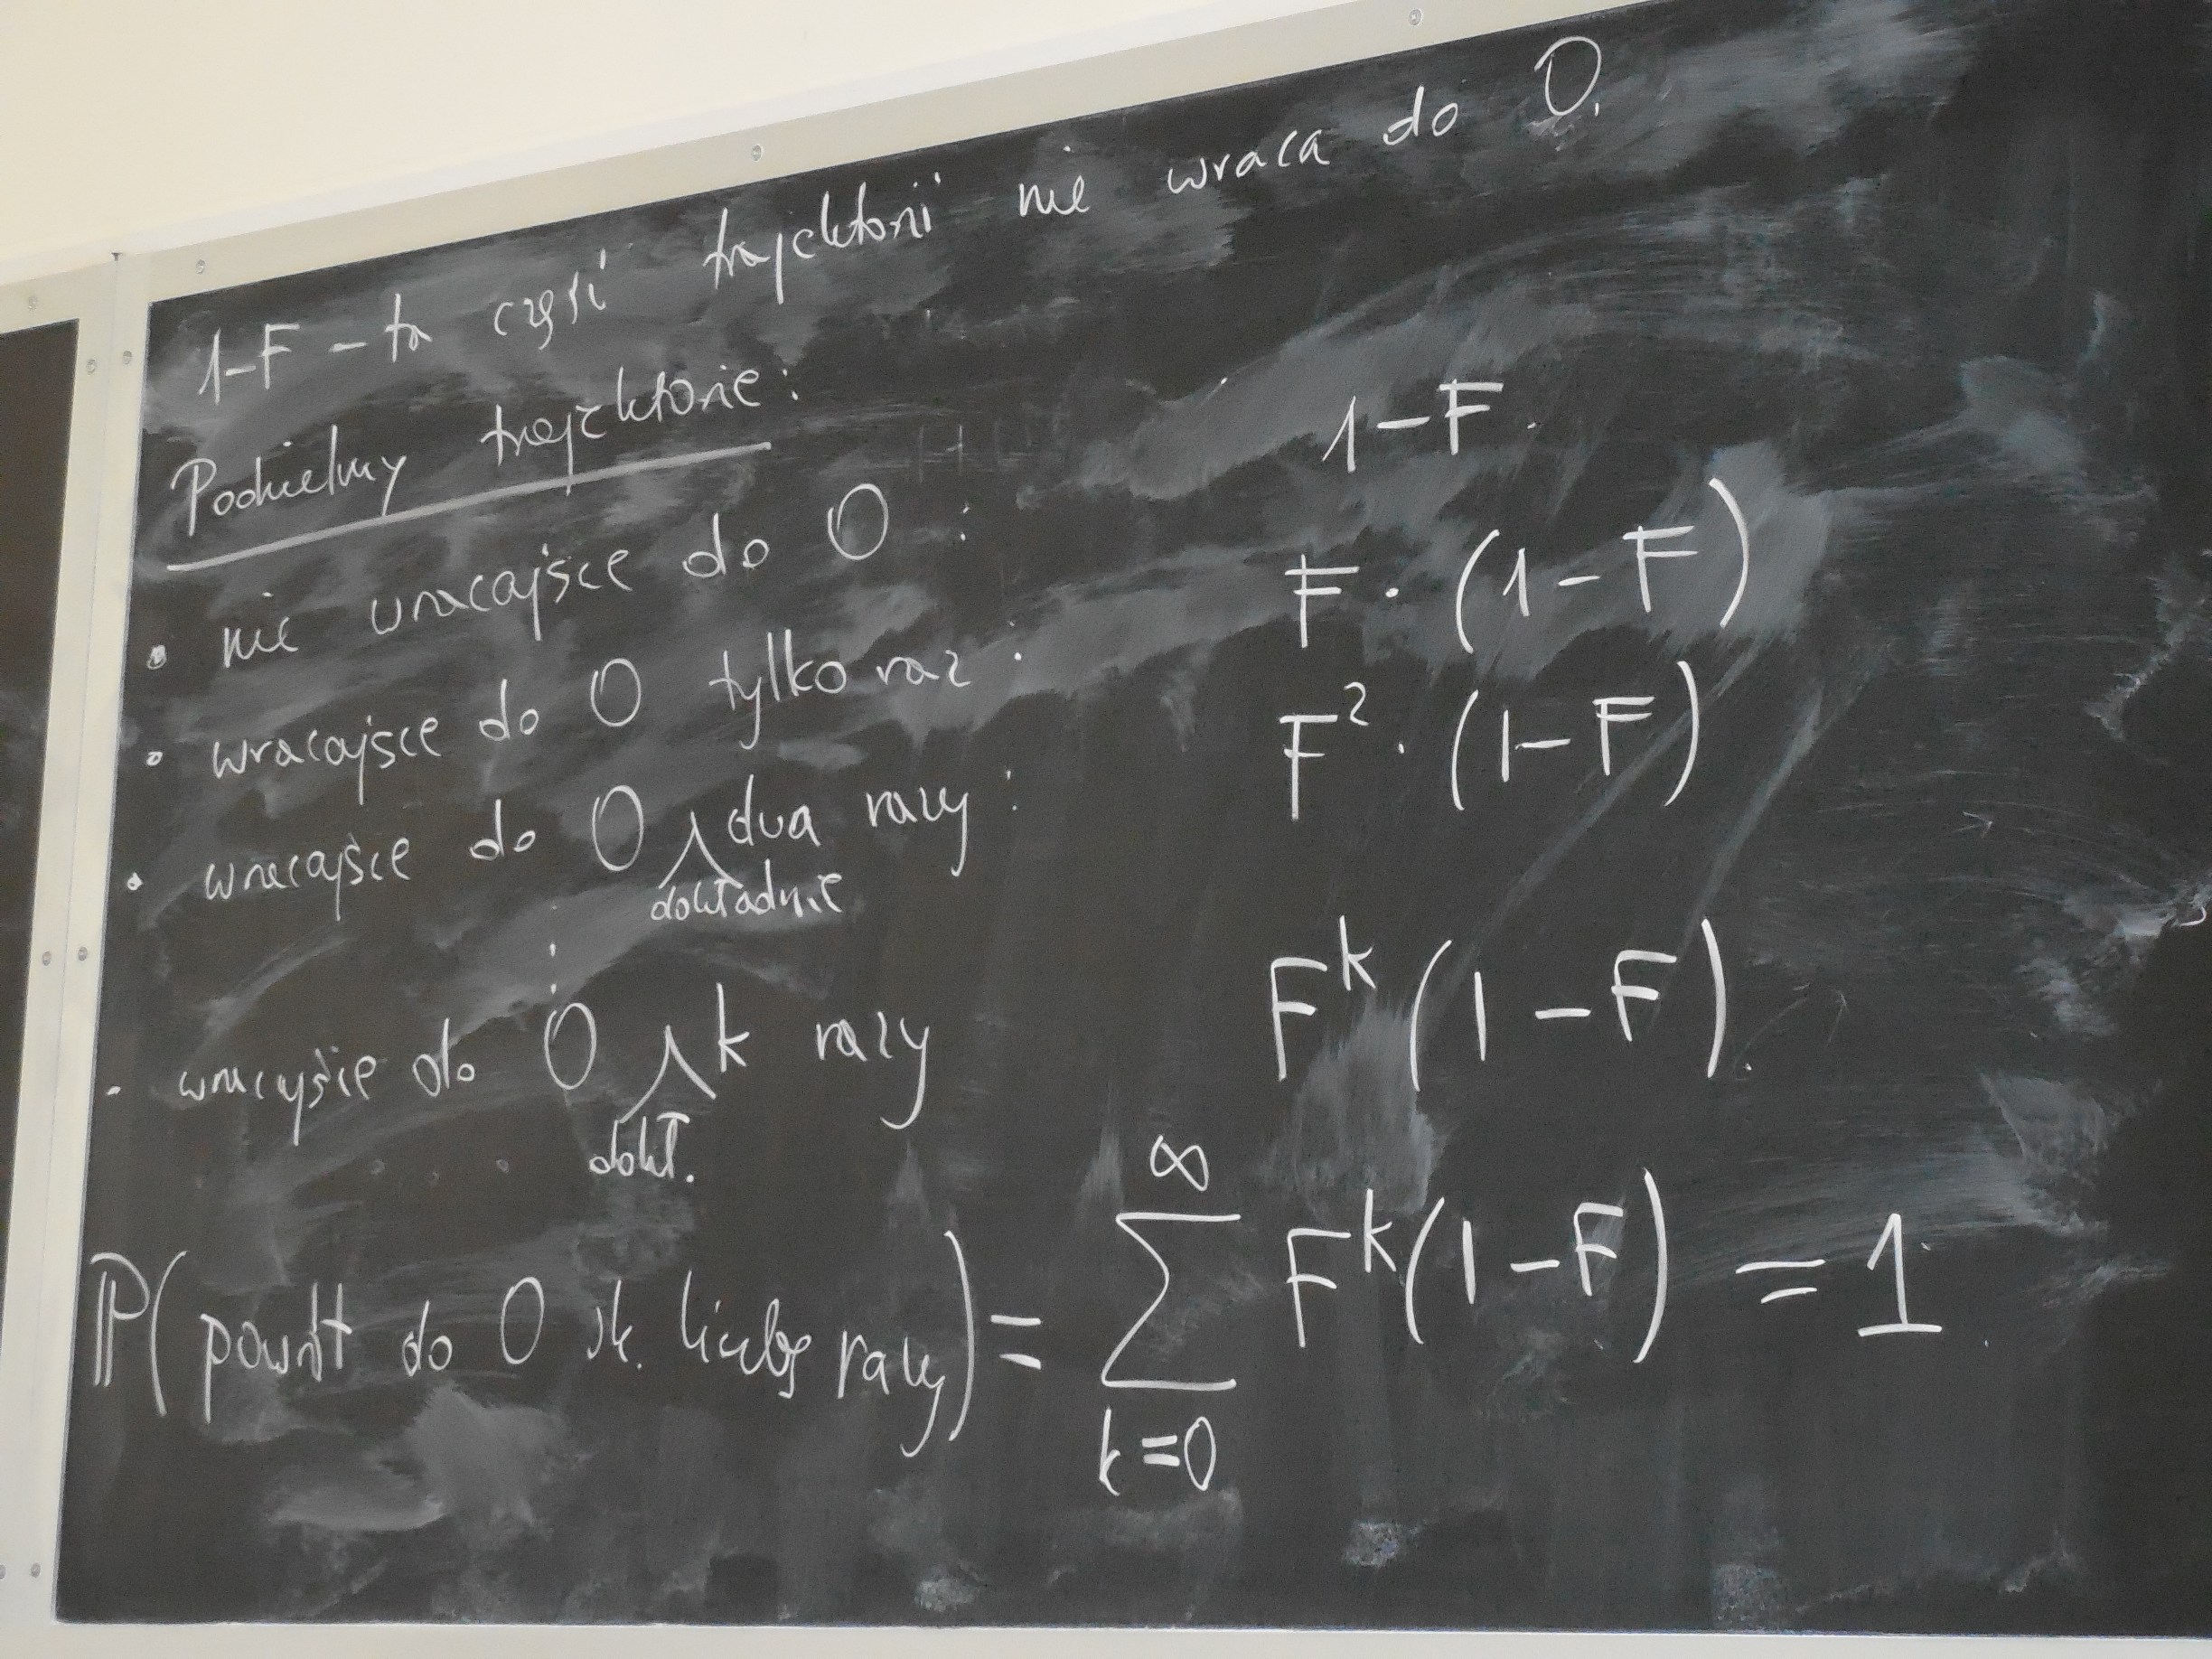 1-F - ta część trajektorii nie wraca do O.
Podzielmy trajektorie:
• nie wracające do O : 1-F.
• wracające do O tylko raz : F · (1-F)
• wracające do O dokładnie dwa razy : F² · (1-F)
⋮
- wracające do O dokł. k razy F^k (1-F).
. . .
ℙ(powrót do O sk. liczbę razy) = ∑_{k=0}^{∞} F^k (1-F) = 1.